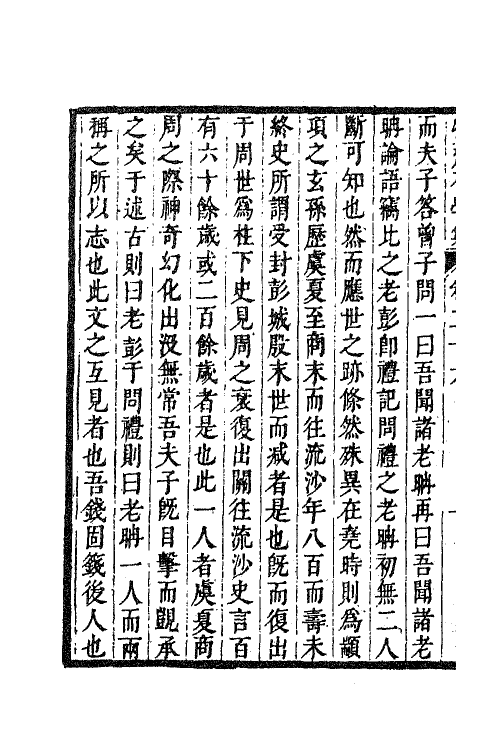 而夫子答曾子問一曰吾聞諸老聃再曰吾聞諸老
聃論語竊比之老彭卽禮記問禮之老聃初無二人
斷可知也然而應世之跡倏然殊異在堯時則爲顓
頊之玄孫歷虞夏至商末而往流沙年八百而壽未
終史所謂受封彭城殷末世而滅者是也旣而復出
于周世爲柱下史見周之衰復出關往流沙史言百
有六十餘歲或二百餘歲者是也此一人者虞夏商
周之際神奇幻化出没無常吾夫子旣目擊而觀承
之矣于述古則曰老彭于問禮則曰老聃一人而兩
稱之所以志也此文之互見者也吾錢固籛後人也